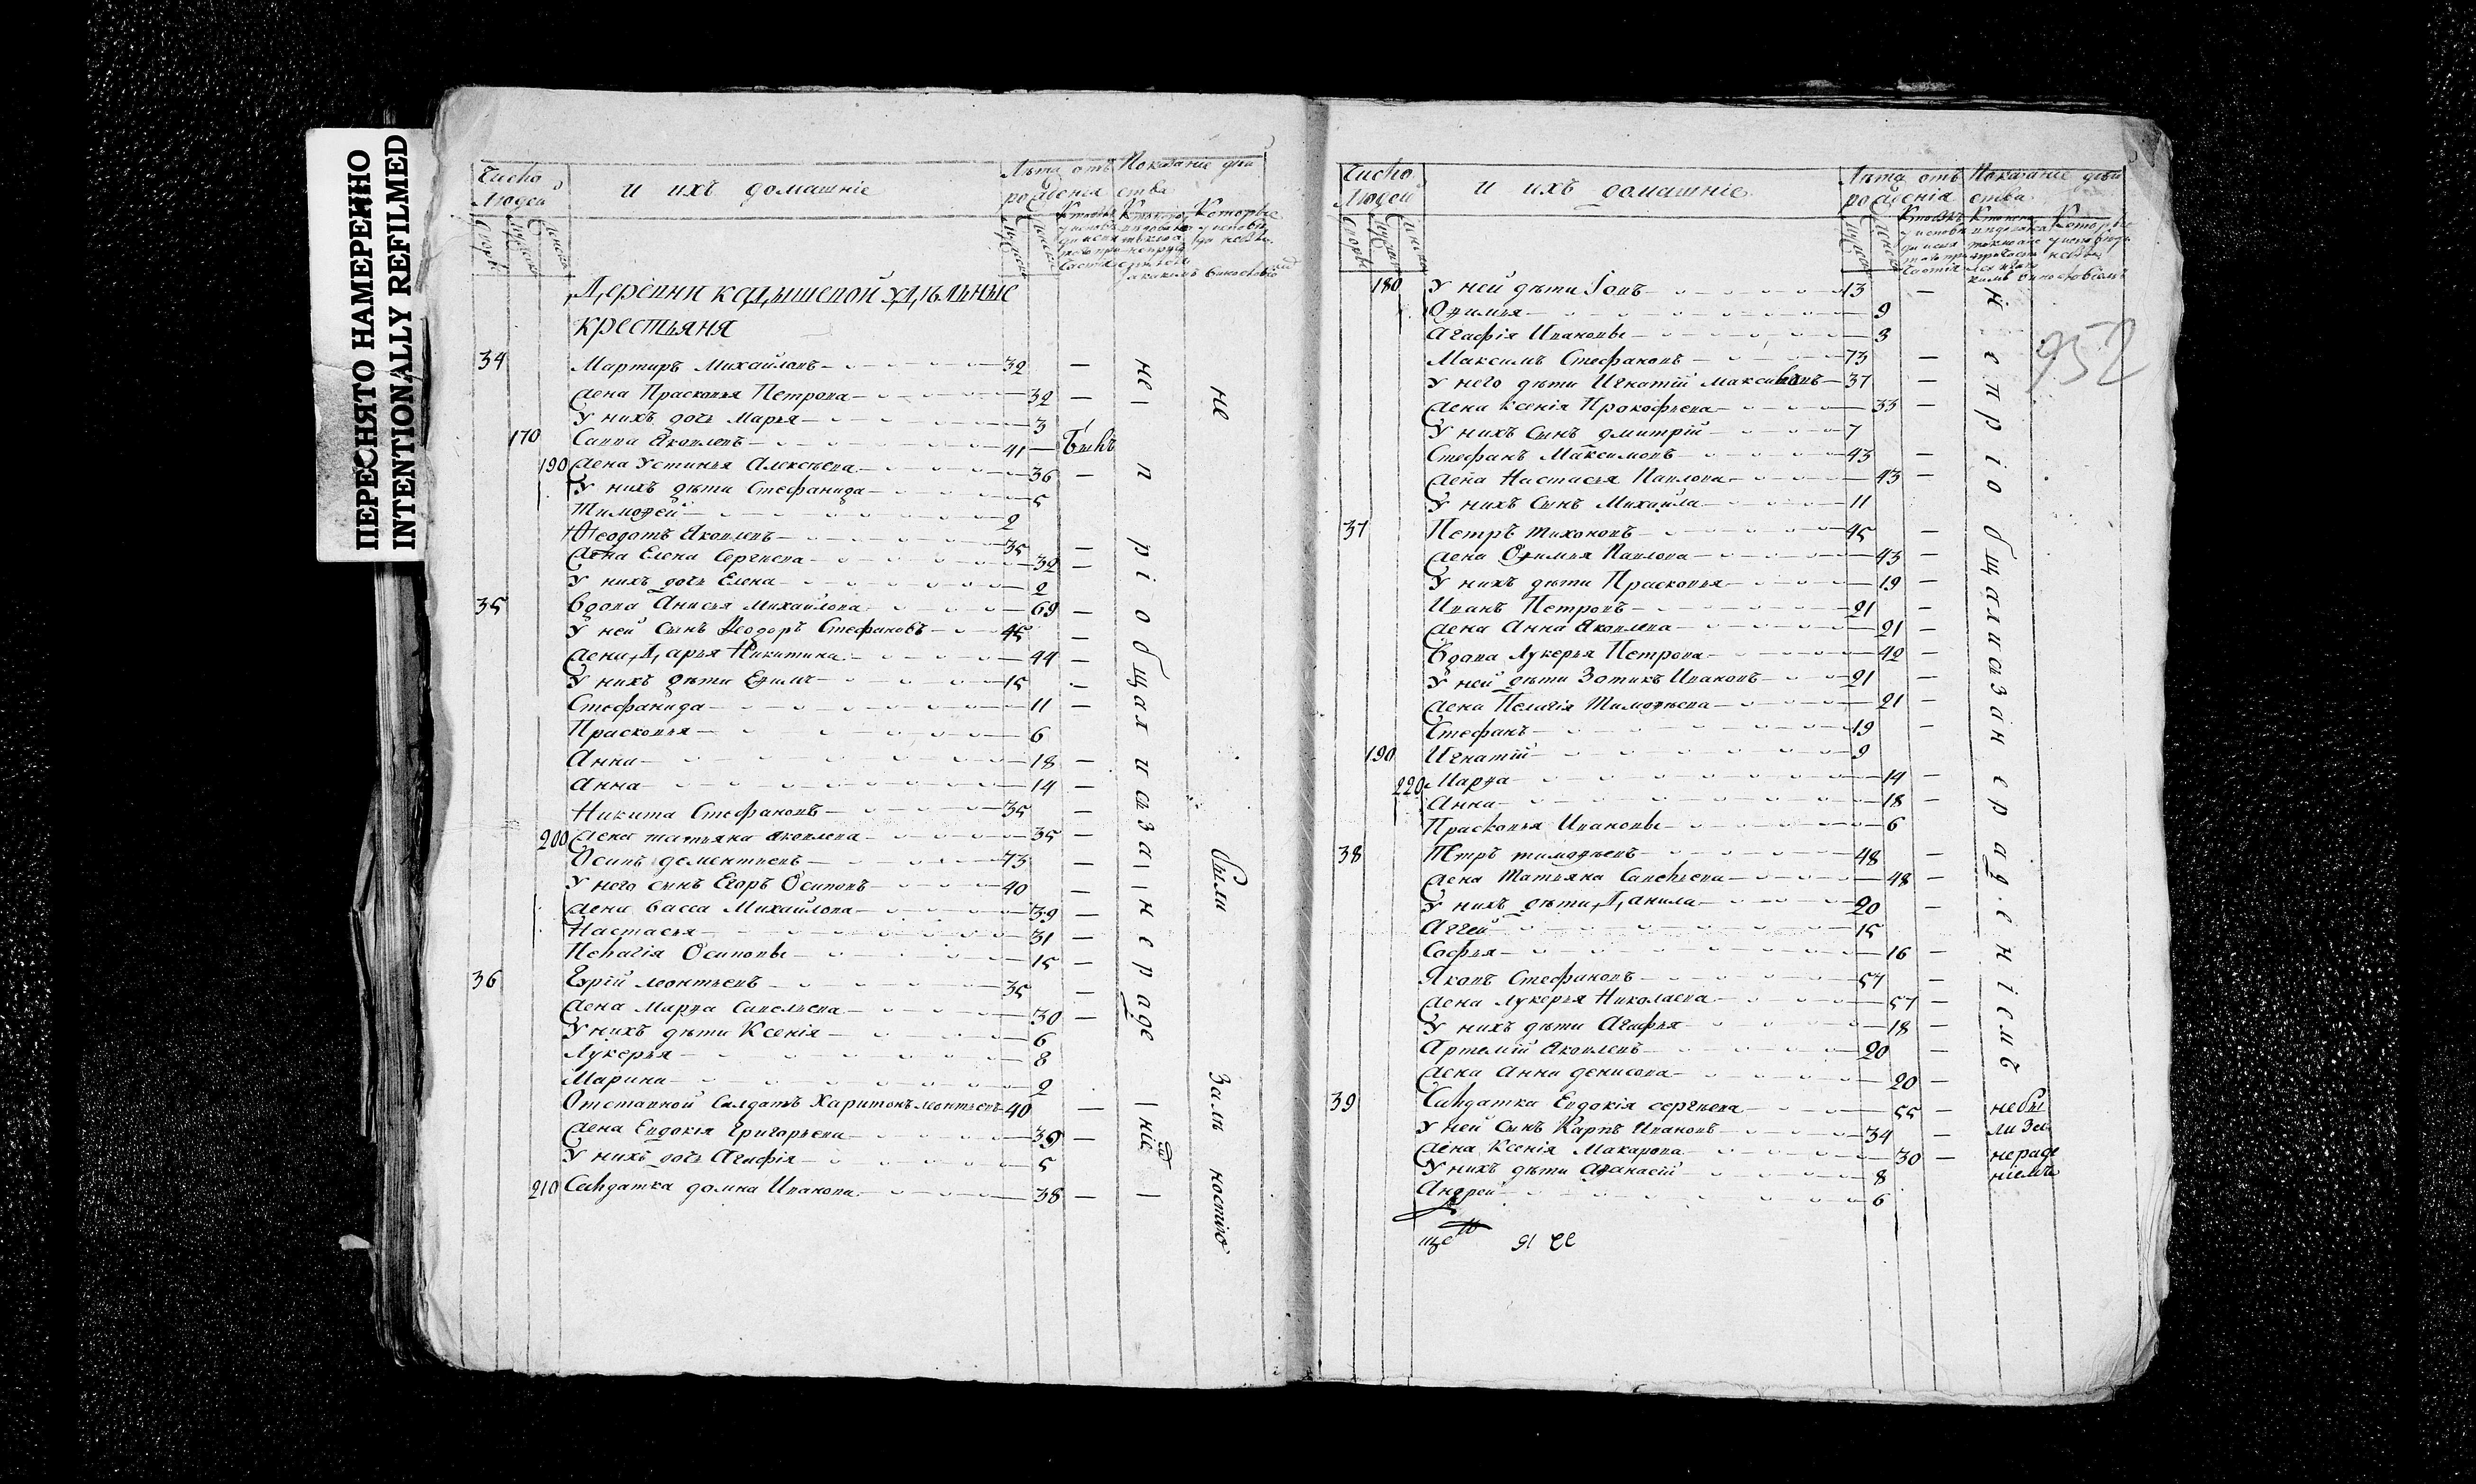 ПЕРЕСНЯТО НАМЕРЕННО
INTENTIONALLY REFILMED
Число Людей
и ихъ домашніе
Лѣта отъ рожденія
Показаніе дѣйства
Деревни кадышевой удѣльные
крестьяня
34 Мартиръ Михайловъ 32
жена Прасковья Петрова 32
у нихъ дочь Марья 3
170 Савва Яковлевъ 41 Былъ
190 жена Устинья Алексѣева 36
у нихъ дѣти Стефанида 5
Тимоѳей 2
Ѳеодотъ Яковлевъ 35
жена Елена Сергѣева 32
у нихъ дочь Елена 2
35 Вдова Анисья Михайлова 69
у ней сынъ Ѳеодоръ Стефановъ 45
жена Дарья Никитина 44
у нихъ дѣти Еѳимъ 15
Стефанида 11
Прасковья 6
Анна 18
Анна 14
Никита Стефановъ 35
200 жена татьяна яковлева 35
Осипъ дементьевъ 73
у него сынъ Егоръ Осиповъ 40
жена васса Михайлова 39
Настасья 31
Пелагія Осиповы 15
36 леонтьевъ 35
жена Марѳа Савельева 30
у нихъ дѣти Ксенія 6
Лукерья 8
Марина 2
Отставной Салдатъ Харитонъ леонтьевъ 40
жена Евдокія Григорьева 39
у нихъ дочь Агафія 5
210 Салдатка домна Иванова 38
не пріобщался и за нераденіемъ
не были за малностію
Число Людей
и ихъ домашніе
Лѣта отъ рожденія
Показаніе дѣйства
952
180 у ней дѣти Іовъ 13
Оѳимья 9
Агафія Ивановы 3
Максимъ Стефановъ 73
у него дѣти Игнатій Максимовъ 37
жена ксенія Прокофьева 33
у нихъ сынъ дмитрій 7
Стефанъ Максимовъ 43
жена Настасья Павлова 43
у нихъ сынъ Михайла 11
37 Петръ тихоновъ 45
жена Оѳимья Павлова 43
у нихъ дѣти Прасковья 19
Иванъ Петровъ 21
жена Анна Яковлева 21
Вдова Лукерья Петрова 42
у ней дѣти Зотикъ Ивановъ 21
жена Пелагія Тимоѳеева 21
Стефанъ 19
190 Игнатій 9
220 Марѳа 14
Анна 18
Прасковья Ивановы 6
38 Петръ тимоѳеевъ 48
жена Татьяна Савельева 48
у нихъ дѣти Данила 20
Аггей 15
Софья 16
Яковъ Стефановъ 57
жена лукерья Николаева 57
у нихъ дѣти Агафья 18
Артемій Яковлевъ 20
жена Анна денисова 20
39 Салдатка Евдокія сергѣева 55
у ней сынъ Карпъ Ивановъ 34
жена Ксенія Макарова 30
у нихъ дѣти Аѳанасій 8
Андрей 6
не пріобщался и за нераденіемъ
не бы
ли за
нераде
ніемъ